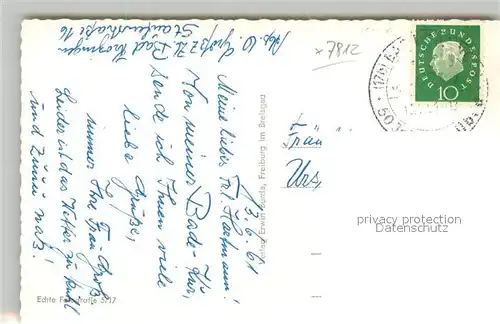 Abs. W. Groß z. Zt. Bad Krozingen
Staufenerstraße 16
× 7812
DEUTSCHE BUNDESPOST
10
13.6.61
Meine liebe Frl. Hartmann!
Von meiner Bade-Kur,
sende ich Ihnen viele
liebe Grüße,
immer Ihre Frau Groß
Leider ist das Wetter zu kühl
und zu naß!
Verlag Erwin Burda, Freiburg im Breisgau
Echte Fotografie 5717
Fräu
Urs
privacy protection
Datenschutz